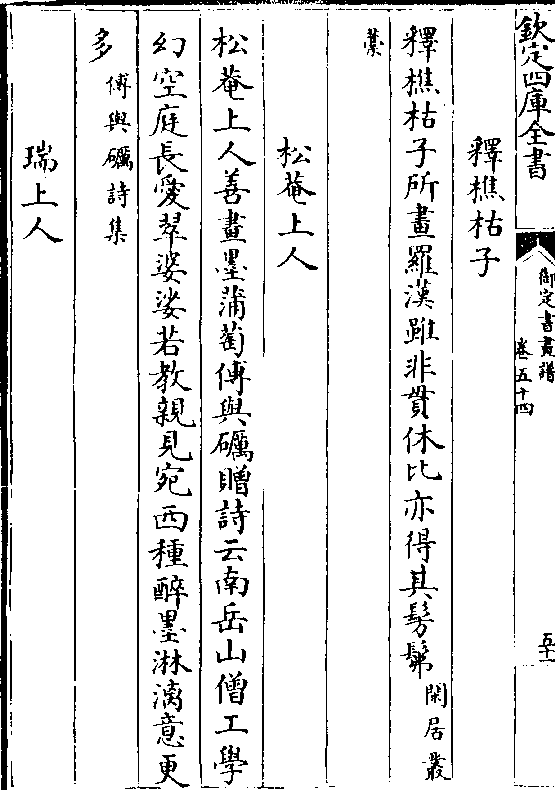 欽定四庫全書
御定書畫譜
卷五十四
五十一
釋樵枯子
釋樵枯子所畫羅漢雖非貫休比亦得其髣髴閑居叢
藁
松菴上人
松菴上人善畫墨蒲萄傅與礪贈詩云南岳山僧工學
幻空庭長愛翠婆娑若教親見宛西種醉墨淋漓意更
多傅與礪詩集
瑞上人